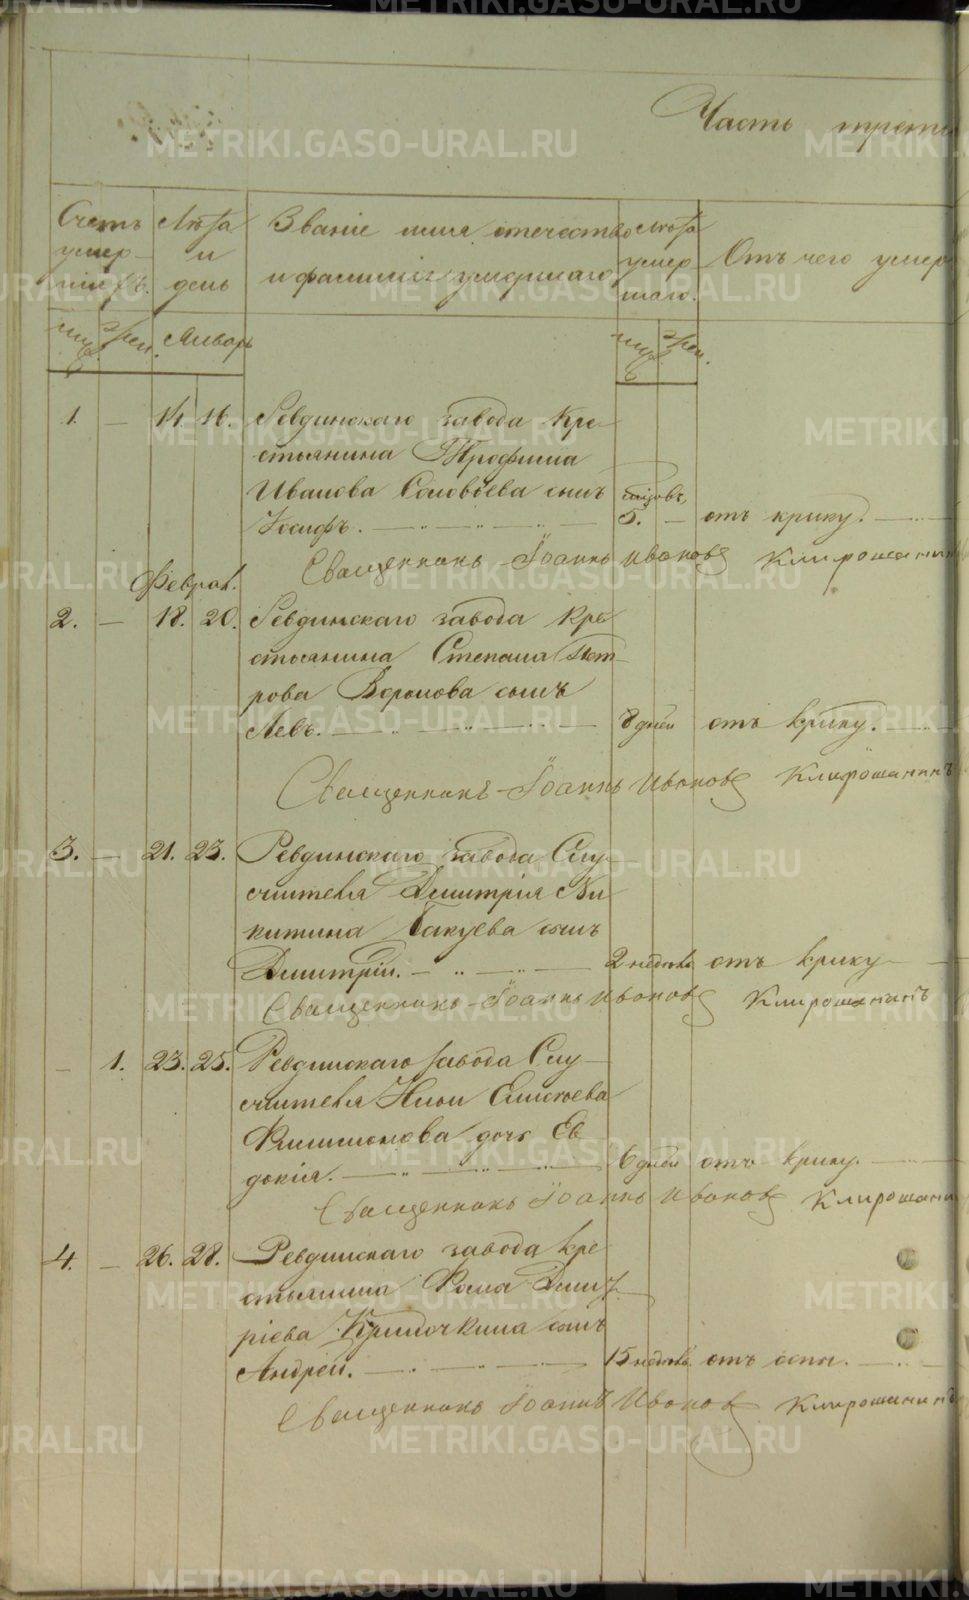 METRIKI.GASO-URAL.RU
Часть
Счетъ умер-
Лѣта и день
Званіе имя отечество и фамилія умершаго
Лѣта умер шаго.
Отъ чего умер
муж. жен. Январь муж. жен.
1. — 14. 16. Ревдинскаго завода Кре
стьянина Трофима
Иванова Соловьева сынъ
Іосифъ. 5. — отъ крику.
Священникъ Іоаннъ Ивановъ Клирошанин
Феврал.
2. — 18. 20. Ревдинскаго завода Кре
стьянина Степана Пет-
рова Воронова сынъ
Левъ. 8 дней отъ крику.
Священникъ Іоаннъ Ивановъ Клирошанинъ
3. — 21. 23. Ревдинскаго завода Слу-
жителя Димитрія Ни
китина сынъ
Димитрій. 2 недѣль отъ крику
Священникъ Іоаннъ Ивановъ Клирошанинъ
— 1. 23. 25. Ревдинскаго завода Слу-
жителя Елисѣева
Филимонова дочь Ев
докія. 6 дней отъ крику.
Священникъ Іоаннъ Ивановъ Клирошани
4. — 26. 28. Ревдинскаго завода Кре
стьянина Димит-
ріева сынъ
Андрей. 15 недѣль отъ оспы.
Священникъ Іоаннъ Ивановъ Клирошанинъ